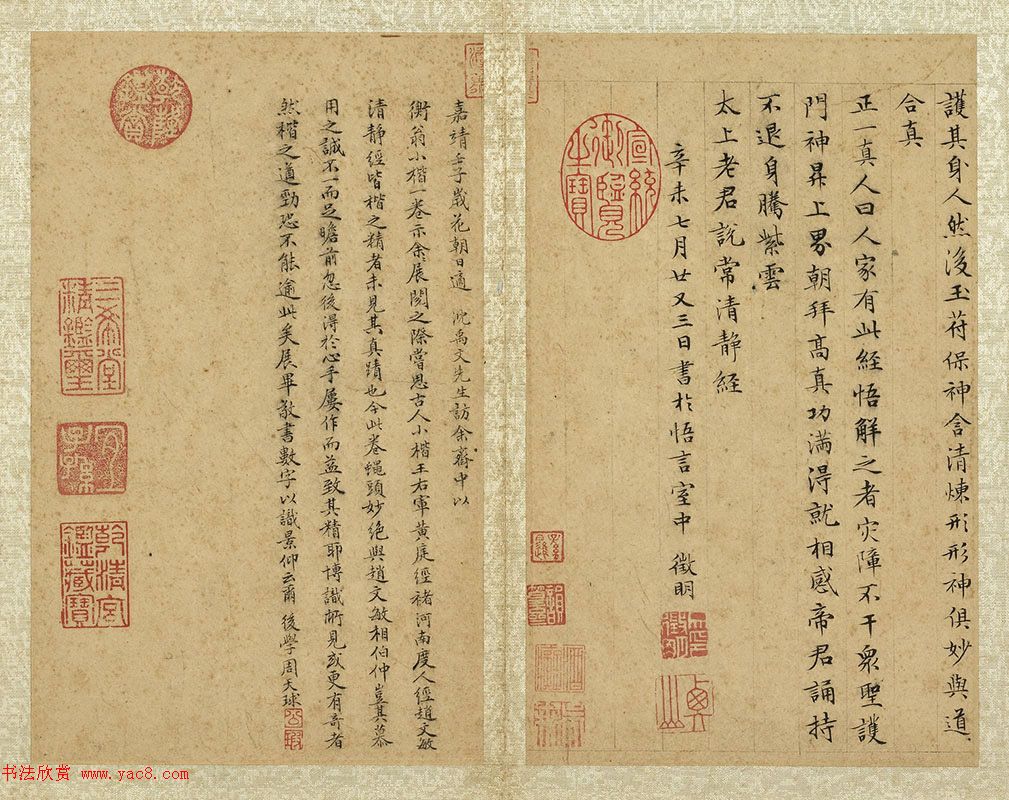 護其身人然後玉符保神含清煉形形神俱妙與道
合真
正一真人曰人家有此經悟解之者灾障不干衆聖護
門神昇上界朝拜高真功滿得就相感帝君誦持
不退身騰紫雲
太上老君説常清静經
辛未七月廿又三日書於悟言室中 徵明
宣統御覽之寶
嘉靖壬子歲花朝日適 沈禹文先生訪余齋中以
衡翁小楷一卷示余展閱之際嘗思古人小楷王右軍黄庭經褚河南度人經趙文敏
清静經皆楷之精者未見其真蹟也今此卷蠅頭妙絶與趙文敏相伯仲豈其慕
用之誠不一而足瞻前忽後得於心手屢作而益致其精耶博識所見或更有奇者
然楷之遒勁恐不能逾此矣展畢敬書數字以識景仰云爾 後學周天球
乾隆鑑賞
三希堂精鑑璽
宜子孫
乾清宮鑑藏寶
书法欣赏 www.yac8.com